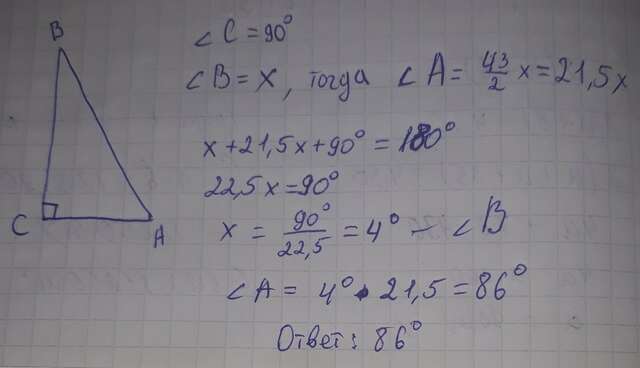 B
C
A
∠C = 90°
∠B = x, тогда ∠A = 43/2 x = 21,5x
x + 21,5x + 90° = 180°
22,5x = 90°
x = 90°/22,5 = 4° – ∠B
∠A = 4° · 21,5 = 86°
Ответ: 86°